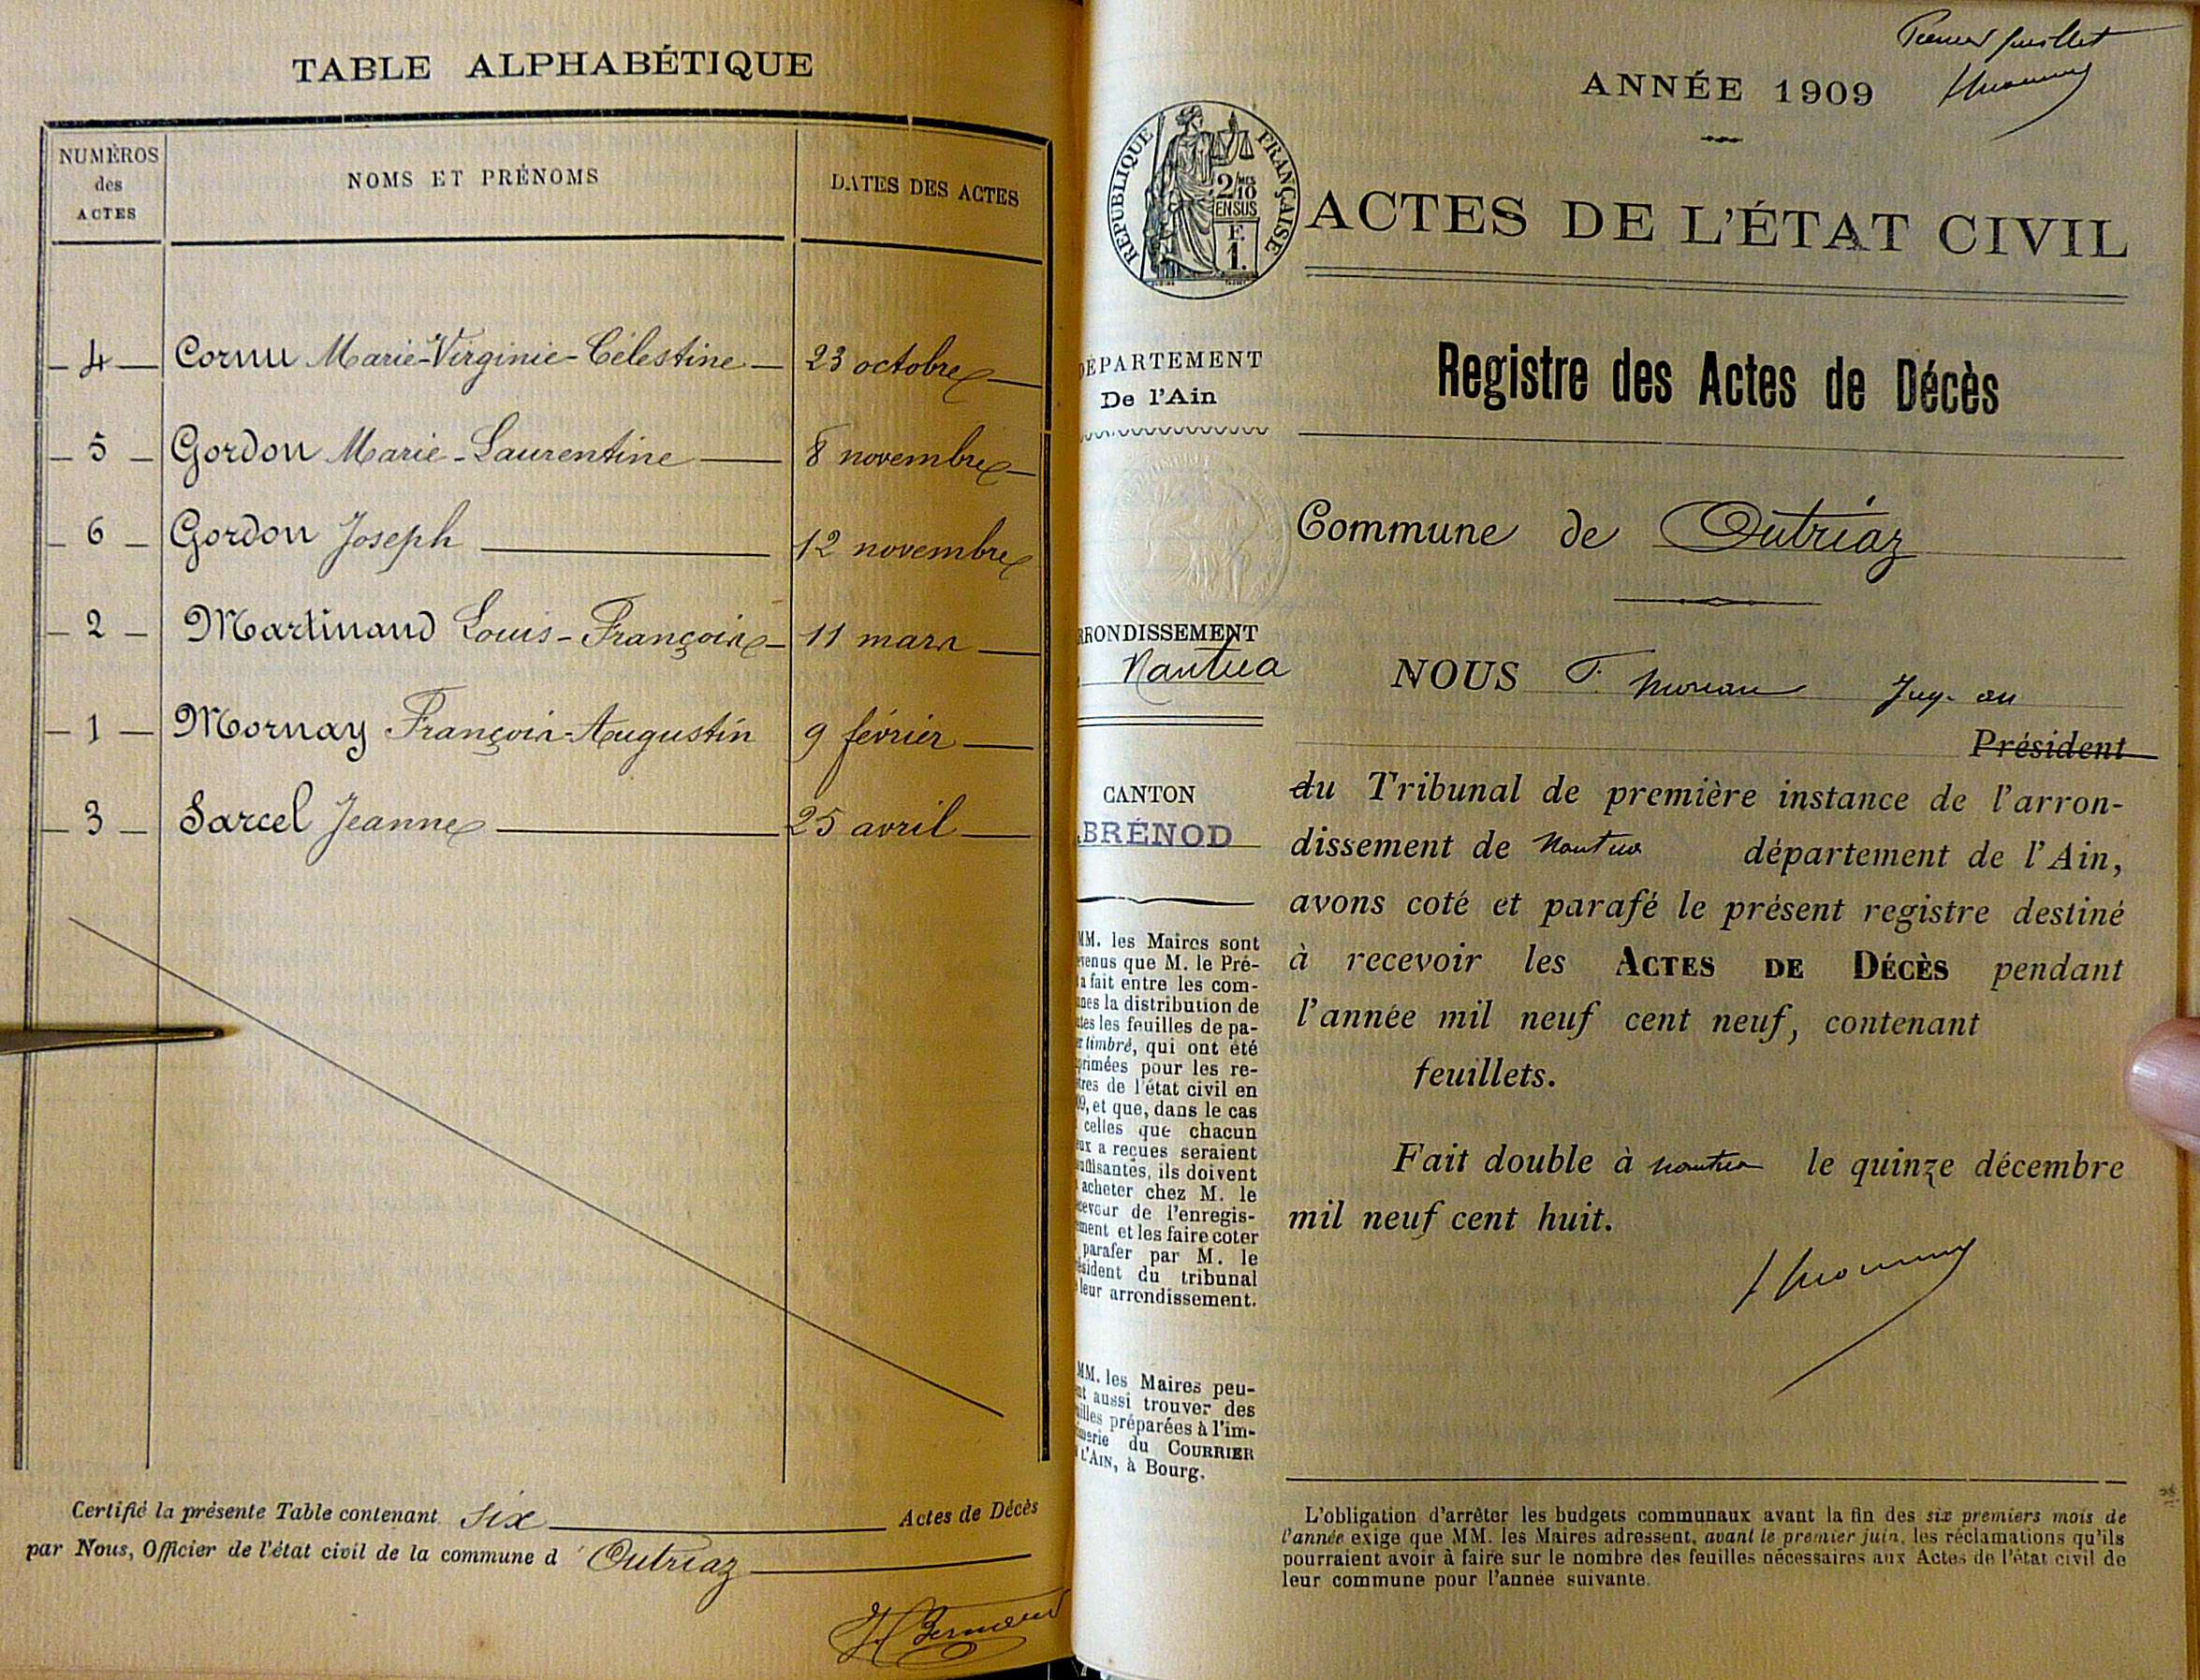 TABLE ALPHABÉTIQUE
NUMÉROS
des
ACTES
NOMS ET PRÉNOMS
DATES DES ACTES
4 Cornu Marie-Virginie-Célestine 23 octobre
5 Gordon Marie-Laurentine 8 novembre
6 Gordon Joseph 12 novembre
2 Martinand Louis-François 11 mars
1 Mornay François-Augustin 9 février
3 Sarcel Jeanne 25 avril
Certifié la présente Table contenant six Actes de Décès
par Nous, Officier de l'état civil de la commune d'Outriaz
Premier feuillet
ANNÉE 1909
RÉPUBLIQUE FRANÇAISE
2/10
MES
EN SUS
F.
1.
ACTES DE L'ÉTAT CIVIL
DÉPARTEMENT
De l'Ain
RRONDISSEMENT
Nantua
CANTON
BRÉNOD
MM. les Maires sont
venus que M. le Pré-
a fait entre les com-
nes la distribution de
tes les feuilles de pa-
r timbré, qui ont été
primées pour les re-
tres de l'état civil en
09, et que, dans le cas
celles que chacun
eux a reçues seraient
uffisantes, ils doivent
acheter chez M. le
ceveur de l'enregis-
ement et les faire coter
parafer par M. le
ésident du tribunal
leur arrondissement.
MM. les Maires peu-
nt aussi trouver des
uilles préparées à l'im-
imerie du COURRIER
L'AIN, à Bourg.
Registre des Actes de Décès
Commune de Outriaz
NOUS F. Moreau Juge au
Président
du Tribunal de première instance de l'arron-
dissement de Nantua département de l'Ain,
avons coté et parafé le présent registre destiné
à recevoir les ACTES DE DÉCÈS pendant
l'année mil neuf cent neuf, contenant
feuillets.
Fait double à Nantua le quinze décembre
mil neuf cent huit.
L'obligation d'arrêter les budgets communaux avant la fin des six premiers mois de
l'année exige que MM. les Maires adressent, avant le premier juin, les réclamations qu'ils
pourraient avoir à faire sur le nombre des feuilles nécessaires aux Actes de l'état civil de
leur commune pour l'année suivante.